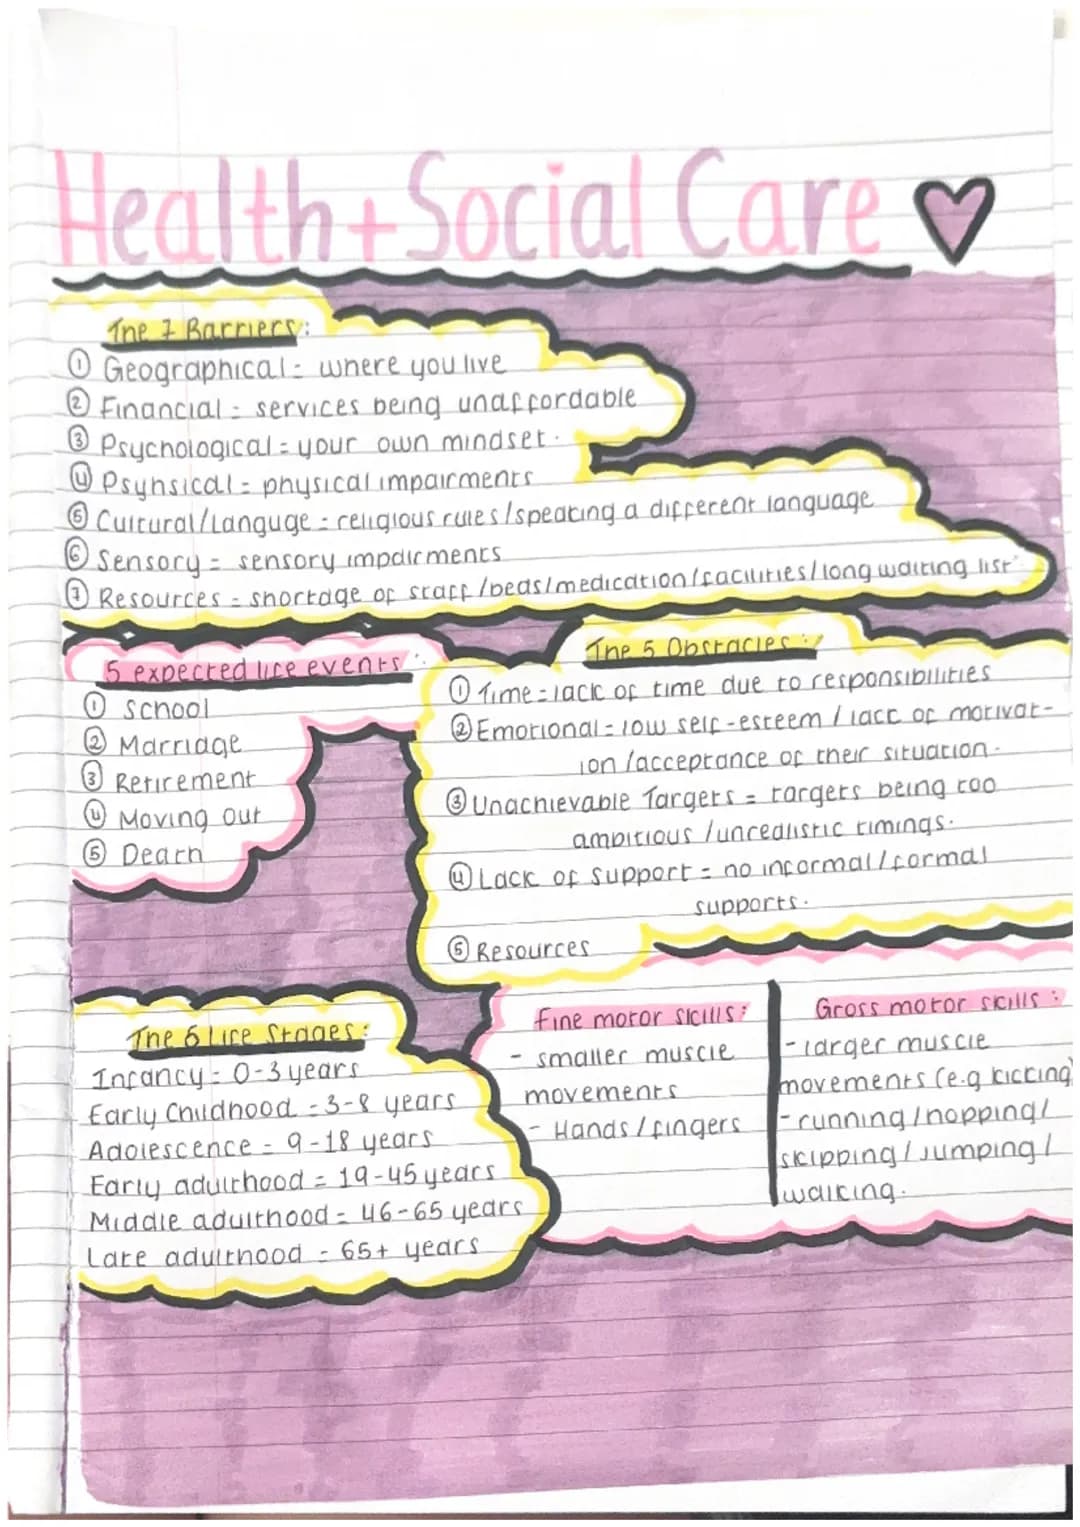 Health + Social Care
The 7 Barriers:
① Geographical = where you live
② Financial = services being unaffordable
③ Psychological = your own mindset.
④ Psyhsical = physical impairments
⑤ Cultural/Languge = religious rules/speaking a different language
⑥ Sensory = sensory impairments
⑦ Resources = shortage of staff/beds/medication/facilities/long waiting list
5 expected life events:
① School
② Marriage
③ Retirement
④ Moving out
⑤ Death
The 5 Obstacles:
① Time = lack of time due to responsibilities
② Emotional = low self-esteem / lack of motivat-
ion/acceptance of their situation.
③ Unachievable Targets = targets being too
ambitious/unrealistic timings.
④ Lack of support = no informal/formal
supports.
⑤ Resources
The 6 Life Stages:
Infancy = 0-3 years
Early Childhood = 3-8 years
Adolescence = 9-18 years
Early adulthood = 19-45 years
Middle adulthood = 46-65 years
Late adulthood = 65+ years
Fine motor skills:
- smaller muscle
movements
- Hands/fingers
Gross motor skills:
- larger muscle
movements (e.g kicking)
- running/hopping/
skipping/jumping/
walking.